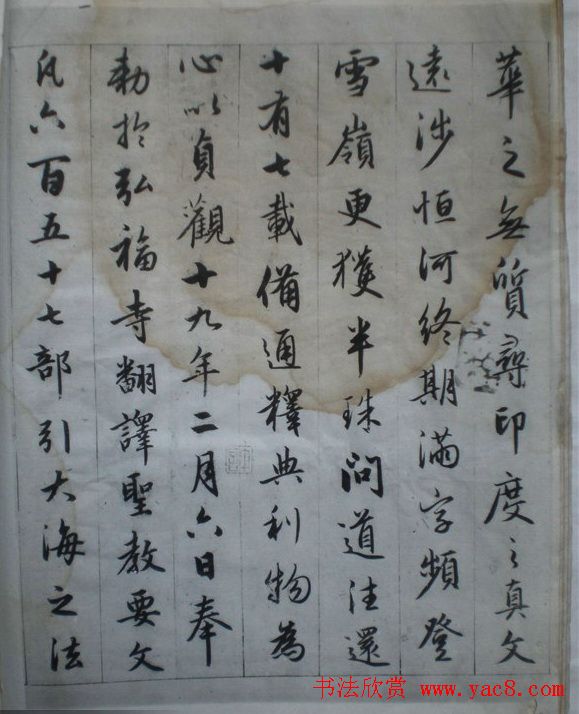 華之無質尋印度之真文
遠涉恒河終期滿字頻登
雪嶺更獲半珠問道往還
十有七載備通釋典利物為
心以貞觀十九年二月六日奉
勅於弘福寺翻譯聖教要文
凡六百五十七部引大海之法
书法欣赏 www.yac8.com